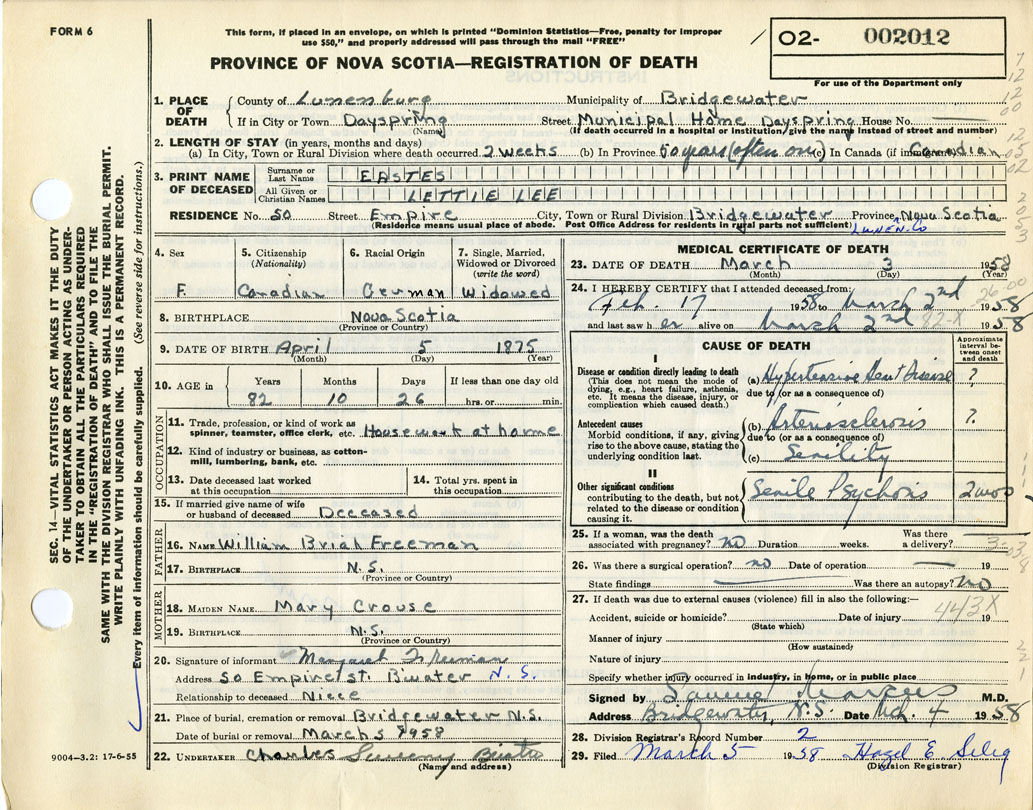 FORM 6
This form, if placed in an envelope, on which is printed "Dominion Statistics—Free, penalty for improper
use $50," and properly addressed will pass through the mail "FREE"
PROVINCE OF NOVA SCOTIA—REGISTRATION OF DEATH
02- 002012
For use of the Department only
SEC. 14—VITAL STATISTICS ACT MAKES IT THE DUTY
OF THE UNDERTAKER OR PERSON ACTING AS UNDER-
TAKER TO OBTAIN ALL THE PARTICULARS REQUIRED
IN THE "REGISTRATION OF DEATH" AND TO FILE THE
SAME WITH THE DIVISION REGISTRAR WHO SHALL ISSUE THE BURIAL PERMIT.
WRITE PLAINLY WITH UNFADING INK. THIS IS A PERMANENT RECORD.
Every item of information should be carefully supplied. (See reverse side for instructions.)
1. PLACE OF DEATH
County of Lunenburg Municipality of Bridgewater
If in City or Town Dayspring Street Municipal Home Dayspring House No.
(Name) (If death occurred in a hospital or institution, give the name instead of street and number)
2. LENGTH OF STAY (in years, months and days)
(a) In City, Town or Rural Division where death occurred 2 weeks (b) In Province 50 years (often over) (c) In Canada (if immigrant) Canadian
3. PRINT NAME OF DECEASED
Surname or Last Name EASTES
All Given or Christian Names LETTIE LEE
RESIDENCE No. 50 Street Empire City, Town or Rural Division Bridgewater Province Nova Scotia
(Residence means usual place of abode. Post Office Address for residents in rural parts not sufficient) LUNEN. CO
4. Sex
F.
5. Citizenship
(Nationality)
Canadian
6. Racial Origin
German
7. Single, Married,
Widowed or Divorced
(write the word)
Widowed
8. BIRTHPLACE Nova Scotia
(Province or Country)
9. DATE OF BIRTH April 5 1875
(Month) (Day) (Year)
10. AGE in Years Months Days If less than one day old
82 10 26 hrs. or min.
OCCUPATION
11. Trade, profession, or kind of work as
spinner, teamster, office clerk, etc. Housework at home
12. Kind of industry or business, as cotton-
mill, lumbering, bank, etc.
13. Date deceased last worked
at this occupation
14. Total yrs. spent in
this occupation
15. If married give name of wife
or husband of deceased Deceased
FATHER
16. NAME William Briah Freeman
17. BIRTHPLACE N.S.
(Province or Country)
MOTHER
18. MAIDEN NAME Mary Crouse
19. BIRTHPLACE N.S.
(Province or Country)
20. Signature of informant Margaret Freeman
Address 50 Empire St. B'water N.S.
Relationship to deceased Niece
21. Place of burial, cremation or removal Bridgewater N.S.
Date of burial or removal March 5 1958
22. UNDERTAKER Charles
(Name and address)
9004—3.2: 17-6-55
MEDICAL CERTIFICATE OF DEATH
23. DATE OF DEATH March 3 1958
(Month) (Day) (Year)
24. I HEREBY CERTIFY that I attended deceased from:
Feb. 17 1958 to March 2nd 1958
and last saw her alive on March 2nd 1958
82-X
CAUSE OF DEATH
Approximate
interval be-
tween onset
and death
I
Disease or condition directly leading to death
(This does not mean the mode of
dying, e.g., heart failure, asthenia,
etc. It means the disease, injury, or
complication which caused death.)
(a) Hypertensive Heart Disease ?
due to (or as a consequence of)
Antecedent causes
Morbid conditions, if any, giving
rise to the above cause, stating the
underlying condition last.
(b) Arteriosclerosis ?
due to (or as a consequence of)
(c) Senility
II
Other significant conditions
contributing to the death, but not
related to the disease or condition
causing it.
Senile Psychosis
25. If a woman, was the death
associated with pregnancy? no Duration weeks.
Was there
a delivery?
26. Was there a surgical operation? no Date of operation 19
State findings Was there an autopsy? No
27. If death was due to external causes (violence) fill in also the following:—
443X
Accident, suicide or homicide? Date of injury 19
(State which)
Manner of injury
(How sustained)
Nature of injury
Specify whether injury occurred in industry, in home, or in public place
Signed by Samuel Marcus M.D.
Address Bridgewater, N.S. Date Mch. 4 1958
28. Division Registrar's Record Number 2
29. Filed March 5 1958 Hazel E. Selig
(Division Registrar)